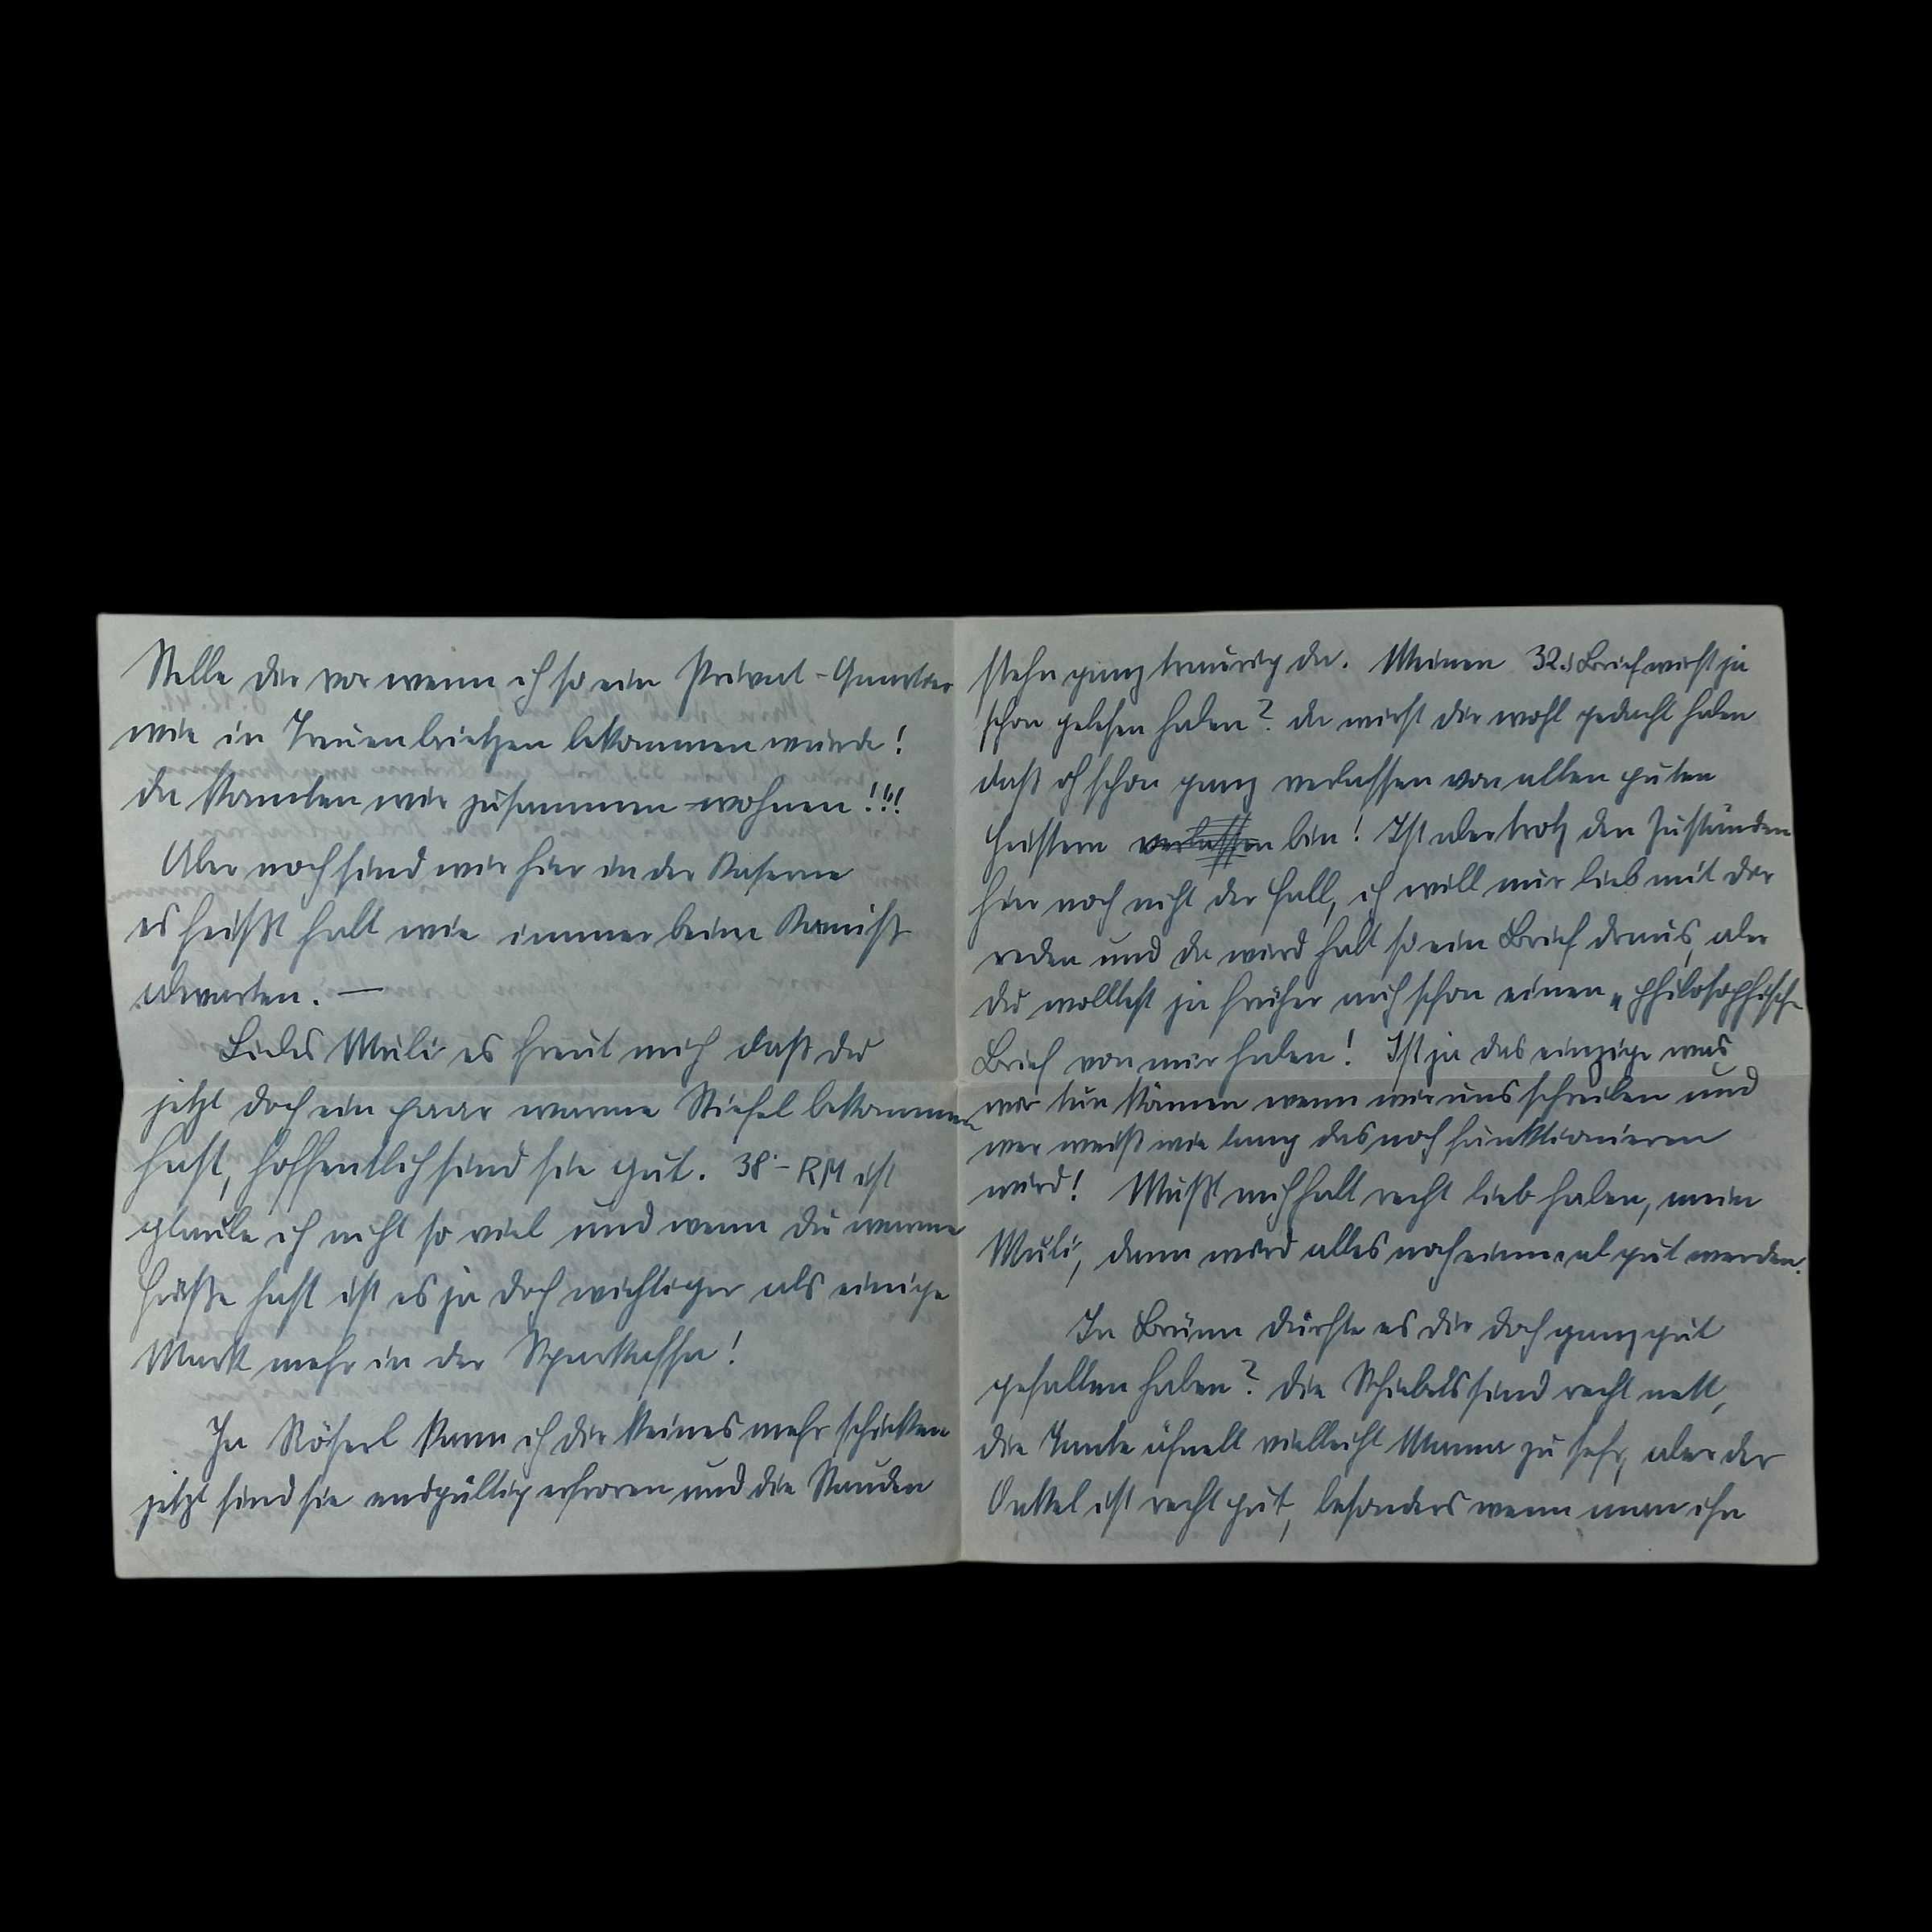 Stelle dir vor wenn ich so ein Privat-Quartier
wie in Treuenbrietzen bekommen würde!
Da könnten wir zusammen wohnen!!!!
Aber noch sind wir hier in der Kaserne
es heißt halt wie immer beim Komiß
abwarten. —
Liebes Muli es freut mich daß du
jetzt doch ein paar warme Stiefel bekommen
hast, hoffentlich sind sie gut. 38.- RM ist
glaube ich nicht so viel und wenn du warme
Füße hast ist es ja doch wichtiger als einige
Mark mehr in der Sparkasse!
Ja Röserl kann ich dir keines mehr schicken
jetzt sind sie endgültig erfroren und die Stauden
stehn ganz traurig da. Meinen 32. Brief wirst ja
schon gelesen haben? da wirst dir wohl gedacht haben
daß ich schon ganz verlassen von allen guten
Geistern verlassen bin! Ist aber trotz den Zuständen
hier noch nicht der Fall, ich will nur lieb mit dir
reden und da wird halt so ein Brief draus, aber
du wolltest ja früher auch schon einen „philosophische
Brief von mir haben! Ist ja das einzige was
wir tun können wenn wir uns schreiben und
wer weiß wie lang das noch funktionieren
wird! Mußt mich halt recht lieb haben, mein
Muli, dann wird alles noch einmal gut werden.
In Brünn dürfte es dir doch ganz gut
gefallen haben? Die Schiebels sind recht nett,
die Tante ähnelt vielleicht Mama zu sehr, aber der
Onkel ist recht gut, besonders wenn man ihn